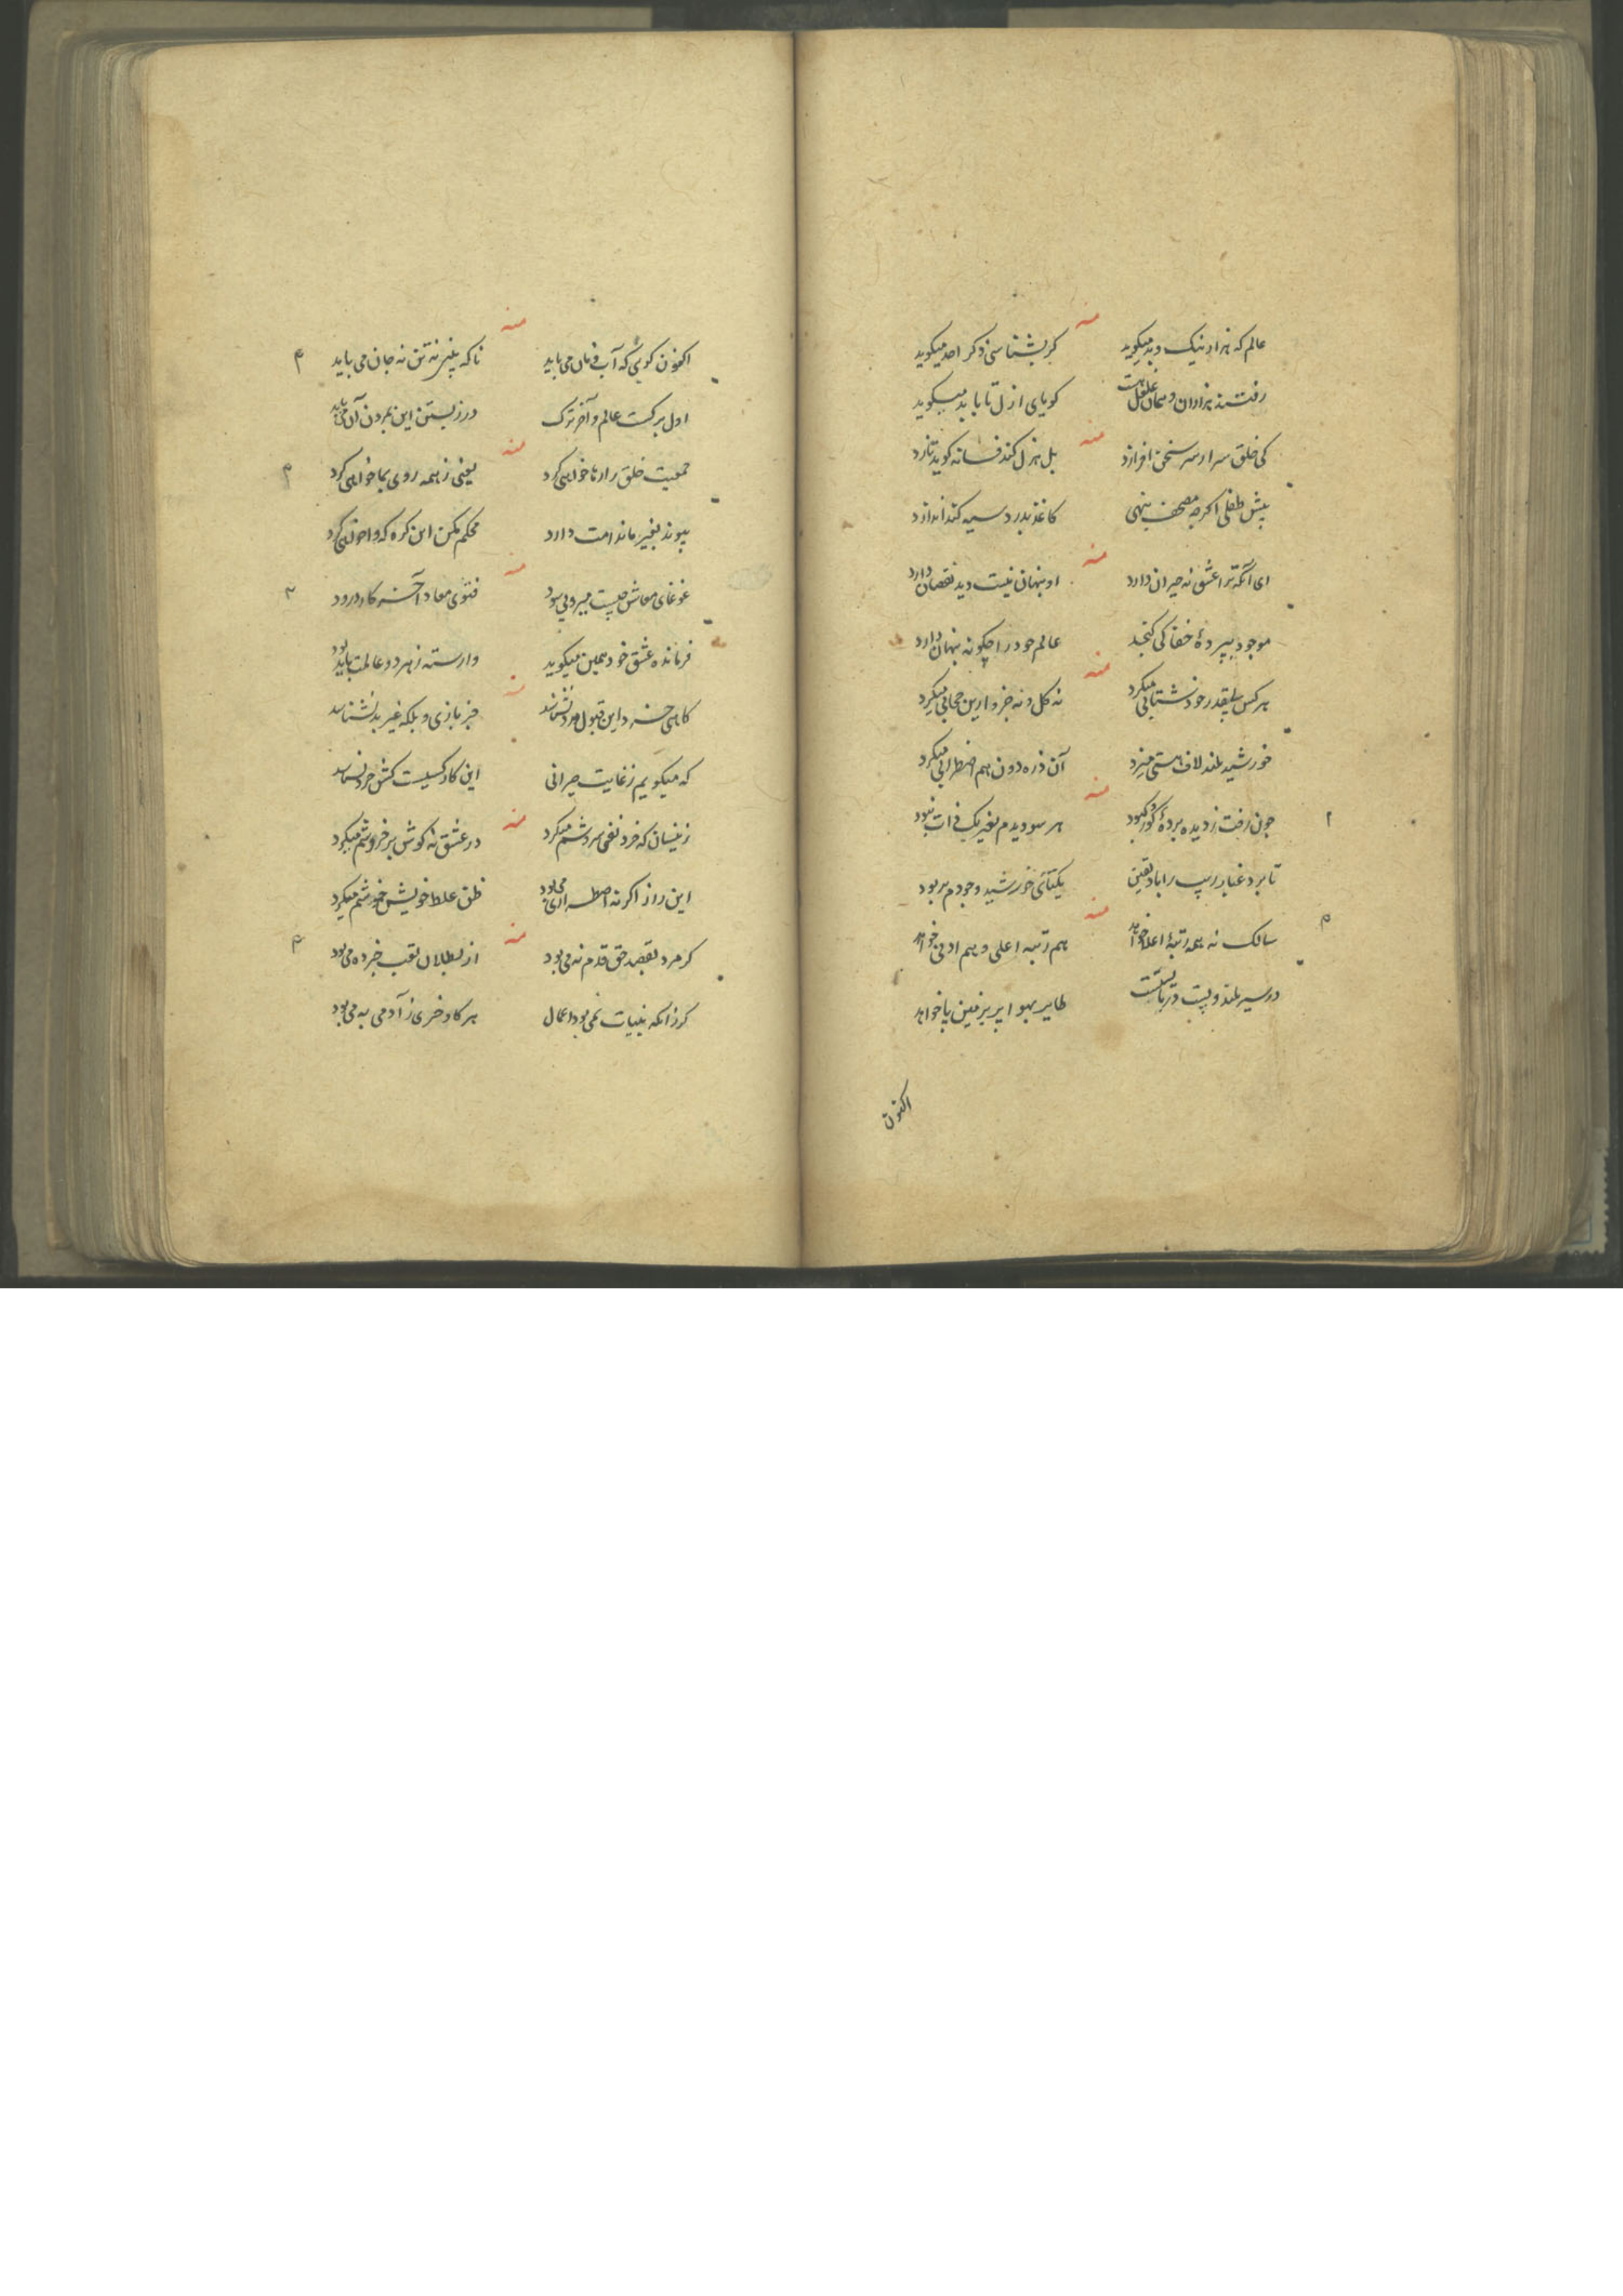 منه
عالم که هزار نیک و بد میکوید کر بشناسی ذکر احد میکوید
رفتند هزاران و همان غلغل هست کویای ازل تا بابد میکوید
منه
کی خلق سر از سر سخن افرازد بل هزل کند فسانه کوید تازد
پیش طفلی اکرچه مصحف بنهی کاغذ بدرد سیه کند اندازد
منه
ای آنکه ترا عشق نه حیران دارد او پنهان نیست دید نقصان دارد
موجود بپردۀ خفا کی کنجد عالم خود را چکونه پنهان دارد
منه
هر کس بقدر خود شتابی میکرد نه کل و نه جزو ازین حجابی میکرد
خورشید بلند لاف هستی میزد آن ذره دون هم اضطرابی میکرد
منه
چون رفت ز دیده پردۀ کور و کبود هر سو دیدم بغیر یک ذات نبود
تا برد غبار ریب را باد یقین یکتائی خورشید وجودم بربود
منه
سالک نه همه رتبۀ اعلا خواهد هم رتبه اعلی و هم ادنی خواهد
در سیر بلند و پست در بایست طایر بهوا پر بزمین پا خواهد
اکنون
منه
اکنون کوئی که آب و نان می باید ناکه پنیر نه تن نه جان می باید
اول برکست عالم و آخر ترک در زیستن این بمردن آن می باید
منه
جمعیت خلق را رها خواهی کرد یعنی ز همه روی بما خواهی کرد
پیوند بغیر ما ندامت دارد محکم مکن این کره که وا خواهی کرد
منه
غوغای معاش چیست میر و بی سود فتوی معاد آخر کار درود
فرمانده عشق خود همین میکوید وارسته ز هر دو عالمت باید بود
منه
کاهی خرد این قبول مرد نشناسد جز بازی و بلکه غیر بد نشناسد
که میکویم ز غایت حیرانی این کار کسیست کش خرد نشناسد
منه
زینسان که خرد نفی سروشم میکرد در عشق نه کوش بر خروشم میکرد
این راز اکر نه اضطراری می بود ظن غلط خویش خموشم میکرد
منه
کر مرد بقصد حق قدم نه می بود از بطالان لقب خبر ده می بود
کر زانکه بنیات نمی بود اعمال هر کاو خری ز آدمی به می بود